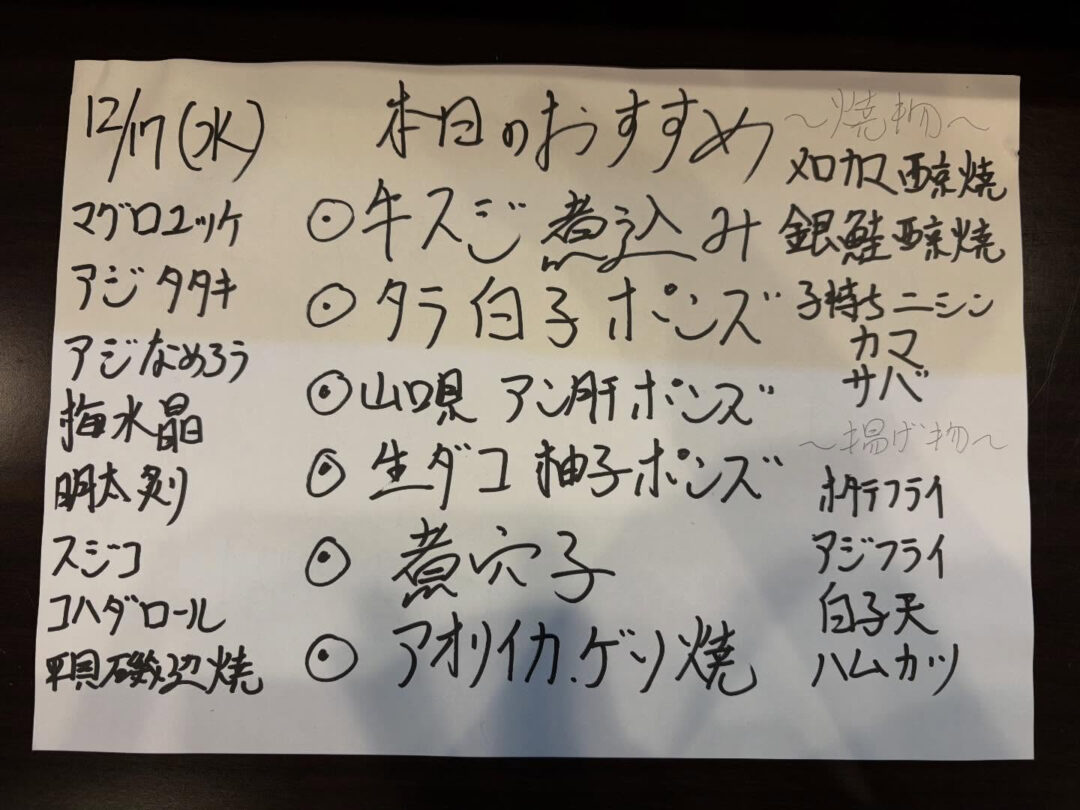 12/17(水)
マグロユッケ
アジタタキ
アジなめろう
梅水晶
明太炙り
スジコ
コハダロール
平貝磯辺焼
本日のおすすめ
◉牛スジ煮込み
◉タラ白子ポンズ
◉山口県 アン肝ポンズ
◉生ダコ 柚子ポンズ
◉煮穴子
◉アオリイカ.ゲソ焼
～焼物～
メロカマ西京焼
銀鮭西京焼
子持ちニシン
カマ
サバ
～揚げ物～
ホタテフライ
アジフライ
白子天
ハムカツ